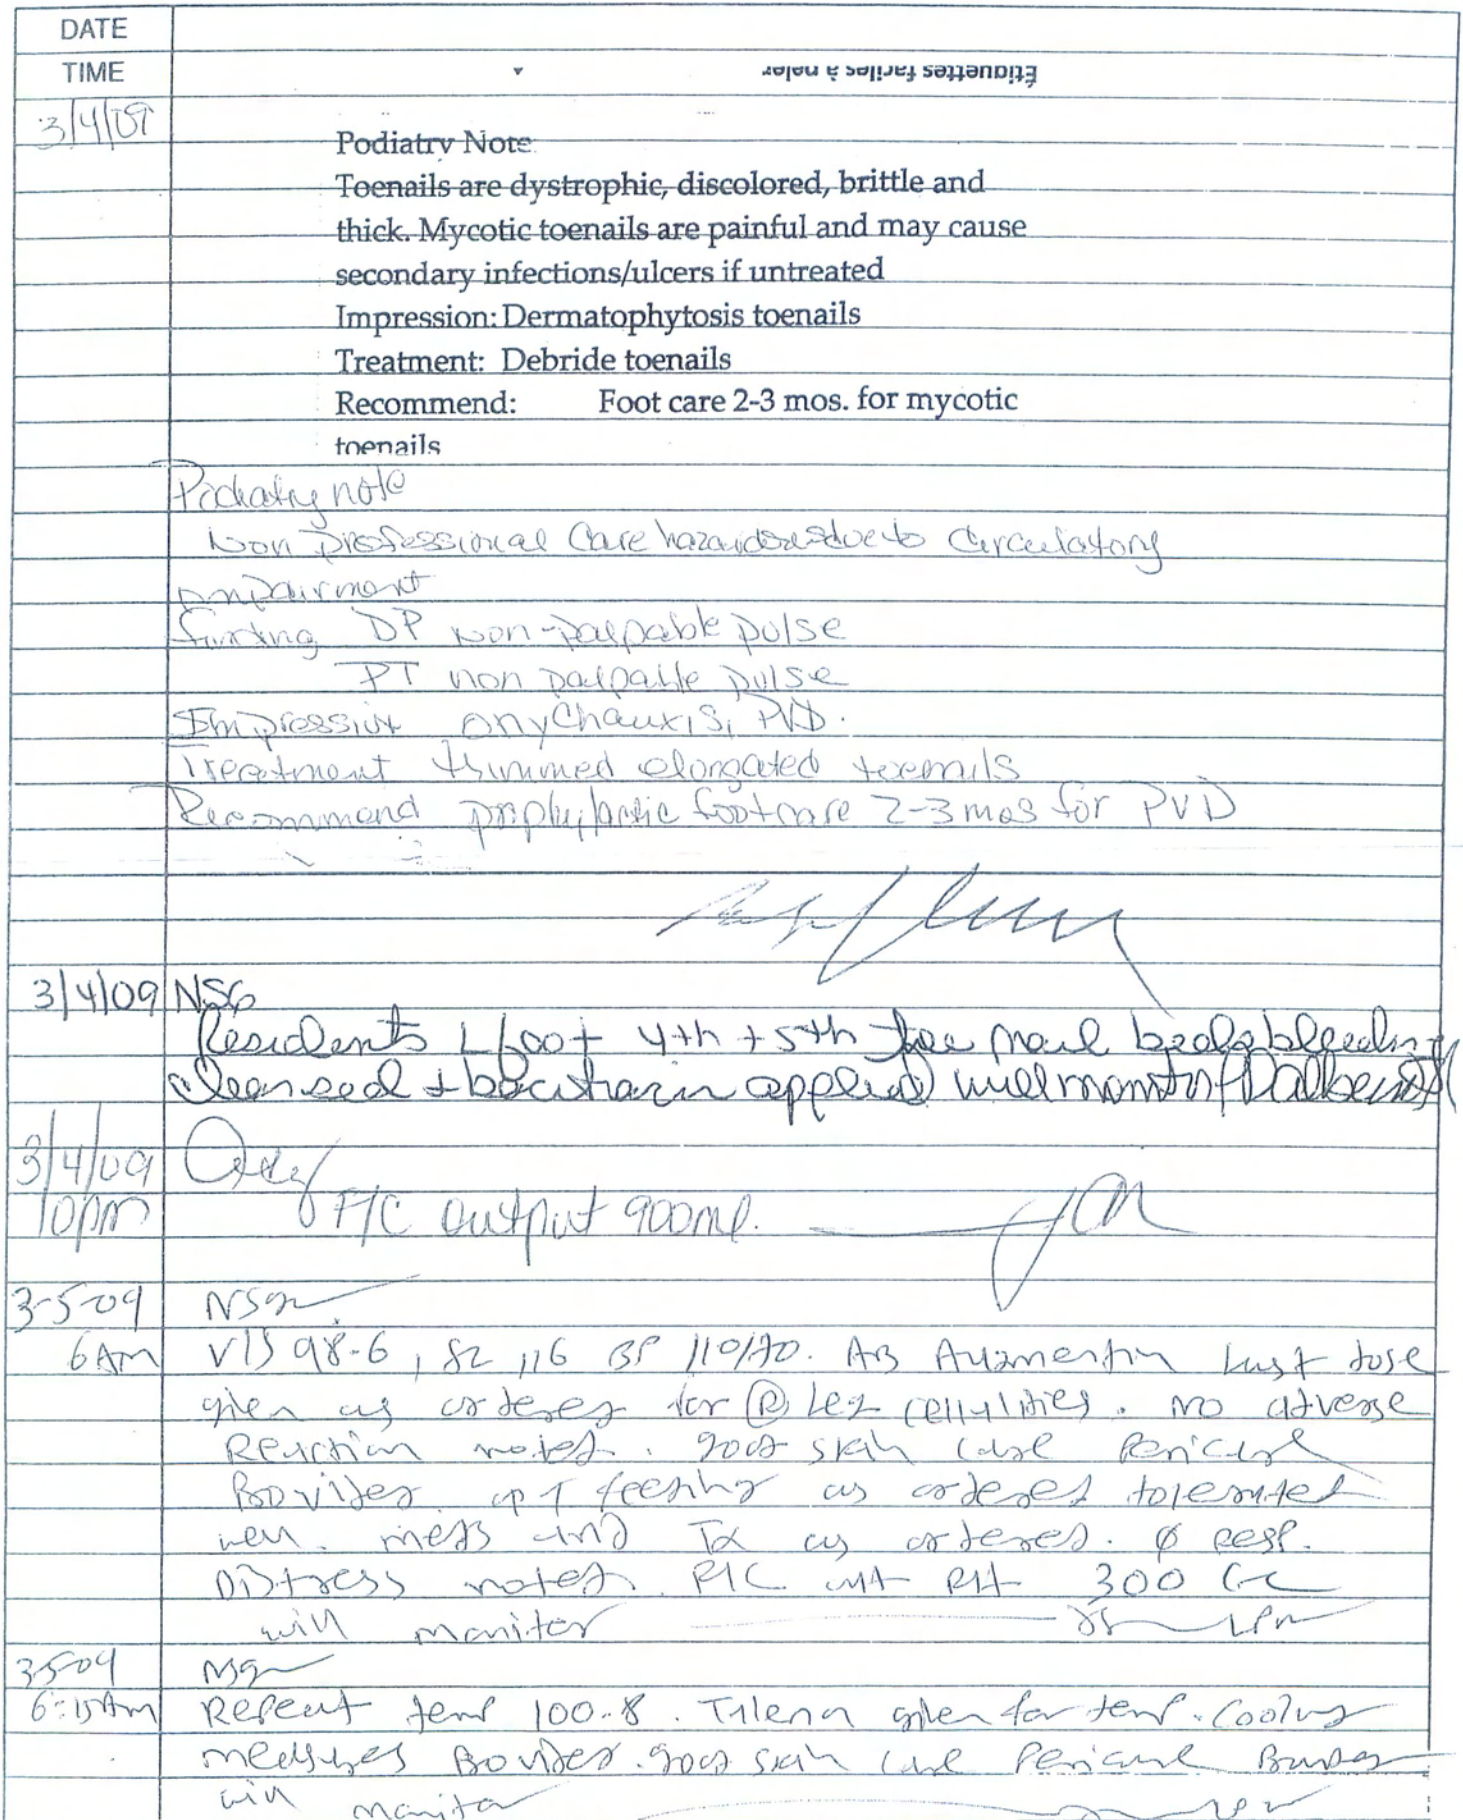 DATE
TIME
Étiquettes faciles à peler
3/4/09
Podiatry Note
Toenails are dystrophic, discolored, brittle and
thick. Mycotic toenails are painful and may cause
secondary infections/ulcers if untreated
Impression: Dermatophytosis toenails
Treatment: Debride toenails
Recommend: Foot care 2-3 mos. for mycotic
toenails
Podiatry note
Non professional care hazardous due to circulatory
impairment
finding DP non-palpable pulse
PT non palpable pulse
Impression onychauxis, PVD.
Treatment thinned elongated toenails
Recommend prophylactic footcare 2-3 mos for PVD
3/4/09 NSG
Residents L foot 4th + 5th toe nail beds bleeding
cleansed + bacitracin applied will monitor
3/4/09
10pm F/C output 900ml.
3-5-09 NSg
6AM V/S 98-6, 82, 16 BP 110/70. AB Augmentin last dose
given as ordered for (R) Leg cellulities. no adverse
Reaction noted. good skin care Pericare
Provided. feeding as ordered tolerated
well. meds and Tx as ordered. Ø resp.
Distress noted. F/C 300 cc
will monitor LPN
3-5-09 NSg
6:15Am Repeat temp 100.8. Tylenol given for temp. Cooling
measures Provided. good skin care Pericare Provided
will monitor LPN